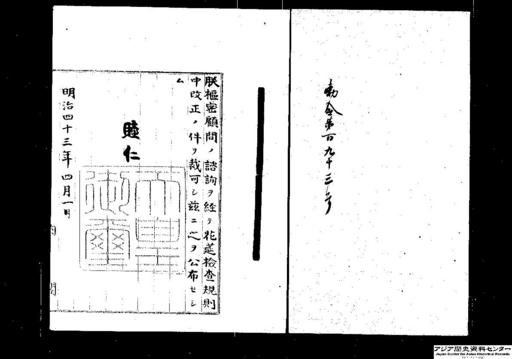 勅令第百九十三号
朕樞密顧問ノ諮詢ヲ経テ花莚検査規則
中改正ノ件ヲ裁可シ茲ニ之ヲ公布セシ
ム
睦仁
天皇御璽
明治四十三年四月一日
内閣
アジア歴史資料センター
Japan Center for Asian Historical Records